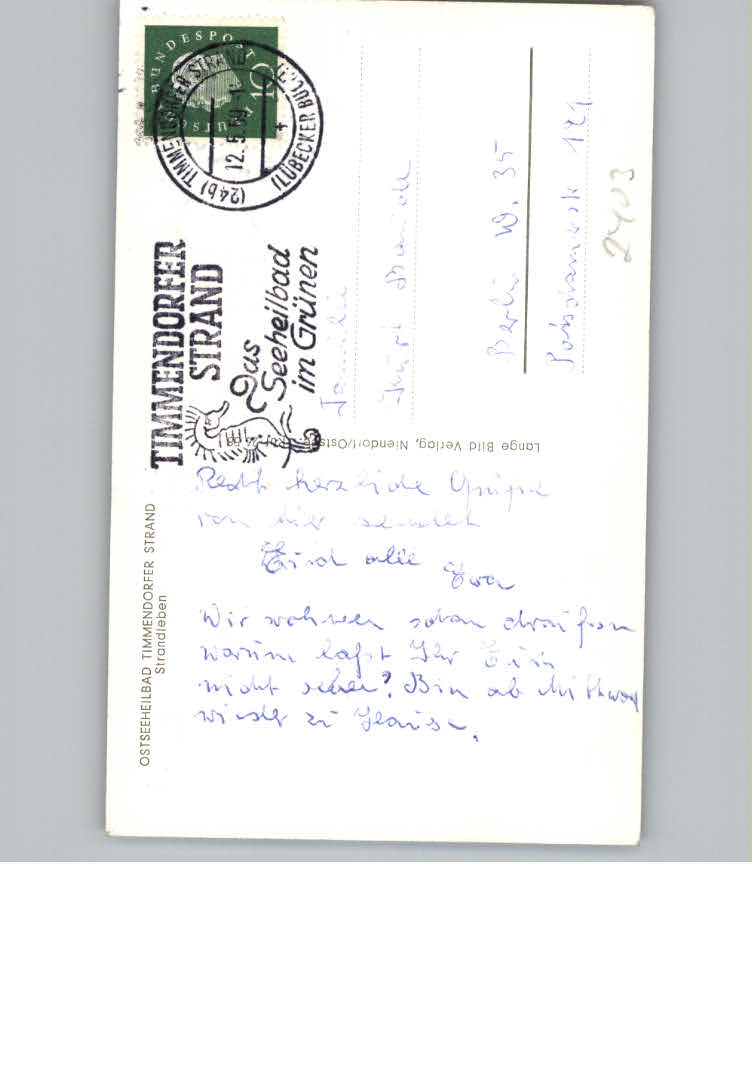 BUNDESPOST
10
(24b) TIMMENDORFER STRAND
12.5.59
(LÜBECKER BUCHT)
TIMMENDORFER
STRAND
Das
Seeheilbad
im Grünen
Familie
Kurt
Berlin W. 35
Potsdamerstr 121
2403
Lange Bild Verlag, Niendorf/Ostsee
OSTSEEHEILBAD TIMMENDORFER STRAND
Strandleben
Recht herzliche Grüße
von hier sendet
Euch alle Eva
Wir wohnen schon draußen
warum laßt Ihr Euch
nicht sehen? Bin ab Mittwoch
wieder zu Hause.